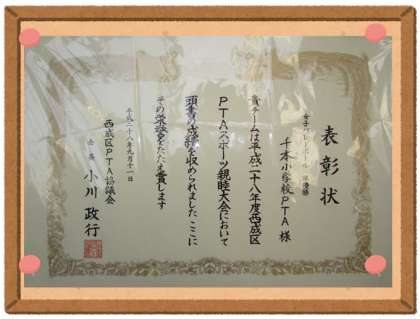 表彰状
女子バレーボール 準優勝
千本小学校PTA 様
貴チームは平成二十八年度西成区
PTAスポーツ親睦大会において
頭書の成績を収められました ここに
その栄誉をたたえ賞します
平成二十八年九月十一日
西成区PTA協議会
会長 小川 政行